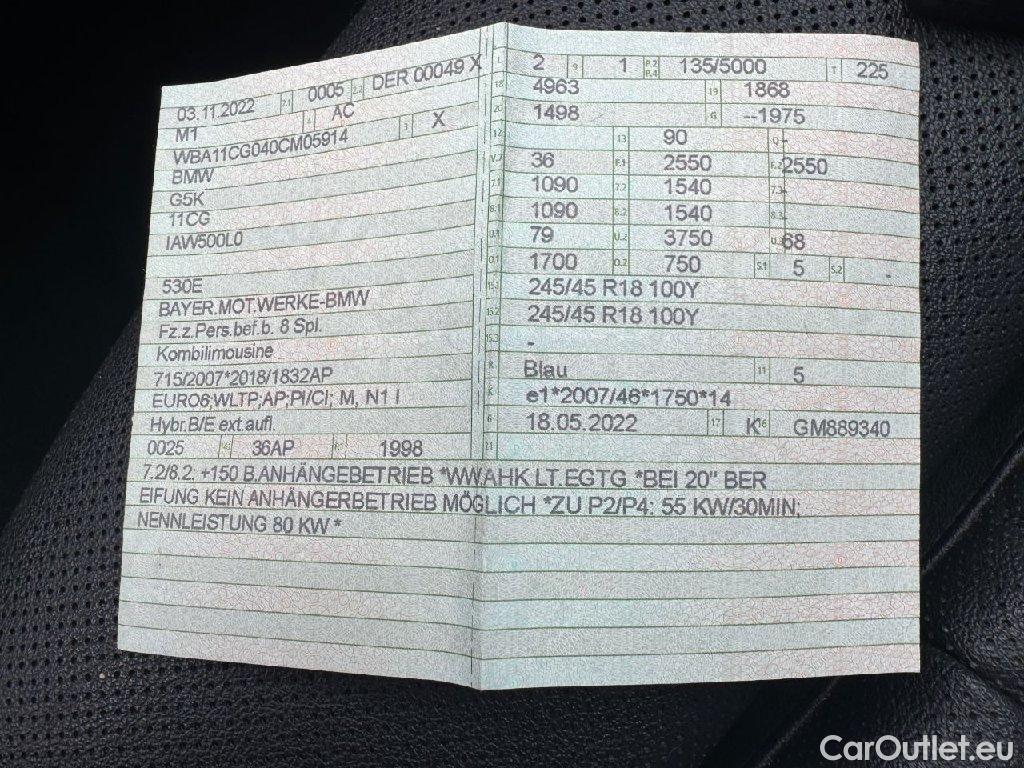 03.11.2022 2.1 0005 2.2 DER 00049 X
M1 4 AC
WBA11CG040CM05914 3 X
BMW
G5K
11CG
IAW500L0
530E
BAYER.MOT.WERKE-BMW
Fz.z.Pers.bef.b. 8 Spl.
Kombilimousine
715/2007*2018/1832AP
EURO6;WLTP;AP;PI/CI; M, N1 I
Hybr.B/E ext.aufl.
0025 36AP 1998
L 2 9 1 P.2 P.4 135/5000 T 225
18 4963 19 1868
20 1498 G --1975
12 13 90 Q -
V.7 36 F.1 2550 F.2 2550
7.1 1090 7.2 1540 7.3 -
8.1 1090 8.2 1540 8.3 -
U.1 79 U.2 3750 U.3 68
O.1 1700 O.2 750 S.1 5 S.2 -
15.1 245/45 R18 100Y
15.2 245/45 R18 100Y
15.3 -
R Blau 11 5
K e1*2007/46*1750*14
6 18.05.2022 17 K 16 GM889340
21
7.2/8.2: +150 B.ANHÄNGEBETRIEB *WW.AHK LT.EGTG *BEI 20" BER
EIFUNG KEIN ANHÄNGERBETRIEB MÖGLICH *ZU P2/P4: 55 KW/30MIN;
NENNLEISTUNG 80 KW *
CarOutlet.eu